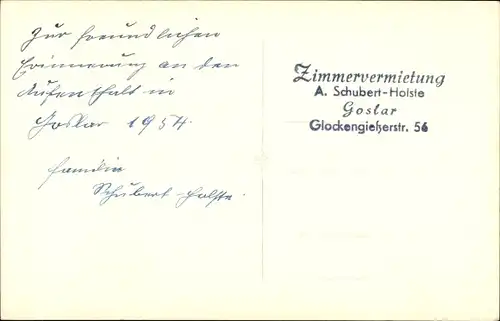 Zur freundlichen
Erinnerung an den
Aufenthalt in
Goslar 1954.
Familie
Schubert-Holste.
Zimmervermietung
A. Schubert-Holste
Goslar
Glockengießerstr. 56